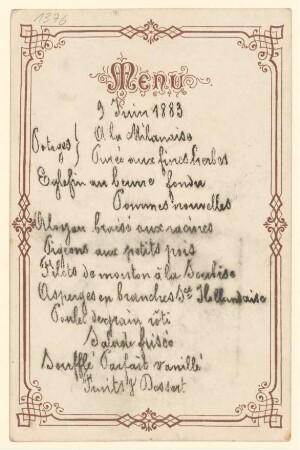 1376
Menu
9 Juin 1883
Potages } A la Milanaise
Purée aux fines herbes
Eglefin au beurre fondu
Pommes nouvelles
Aloyau braisé aux racines
Pigeons aux petits pois
Filets de mouton à la Soubise
Asperges en branches Sce Hollandaise
Poulet de grain rôti
Salade
Soufflé Parfait vanillé
Fruits & Dessert